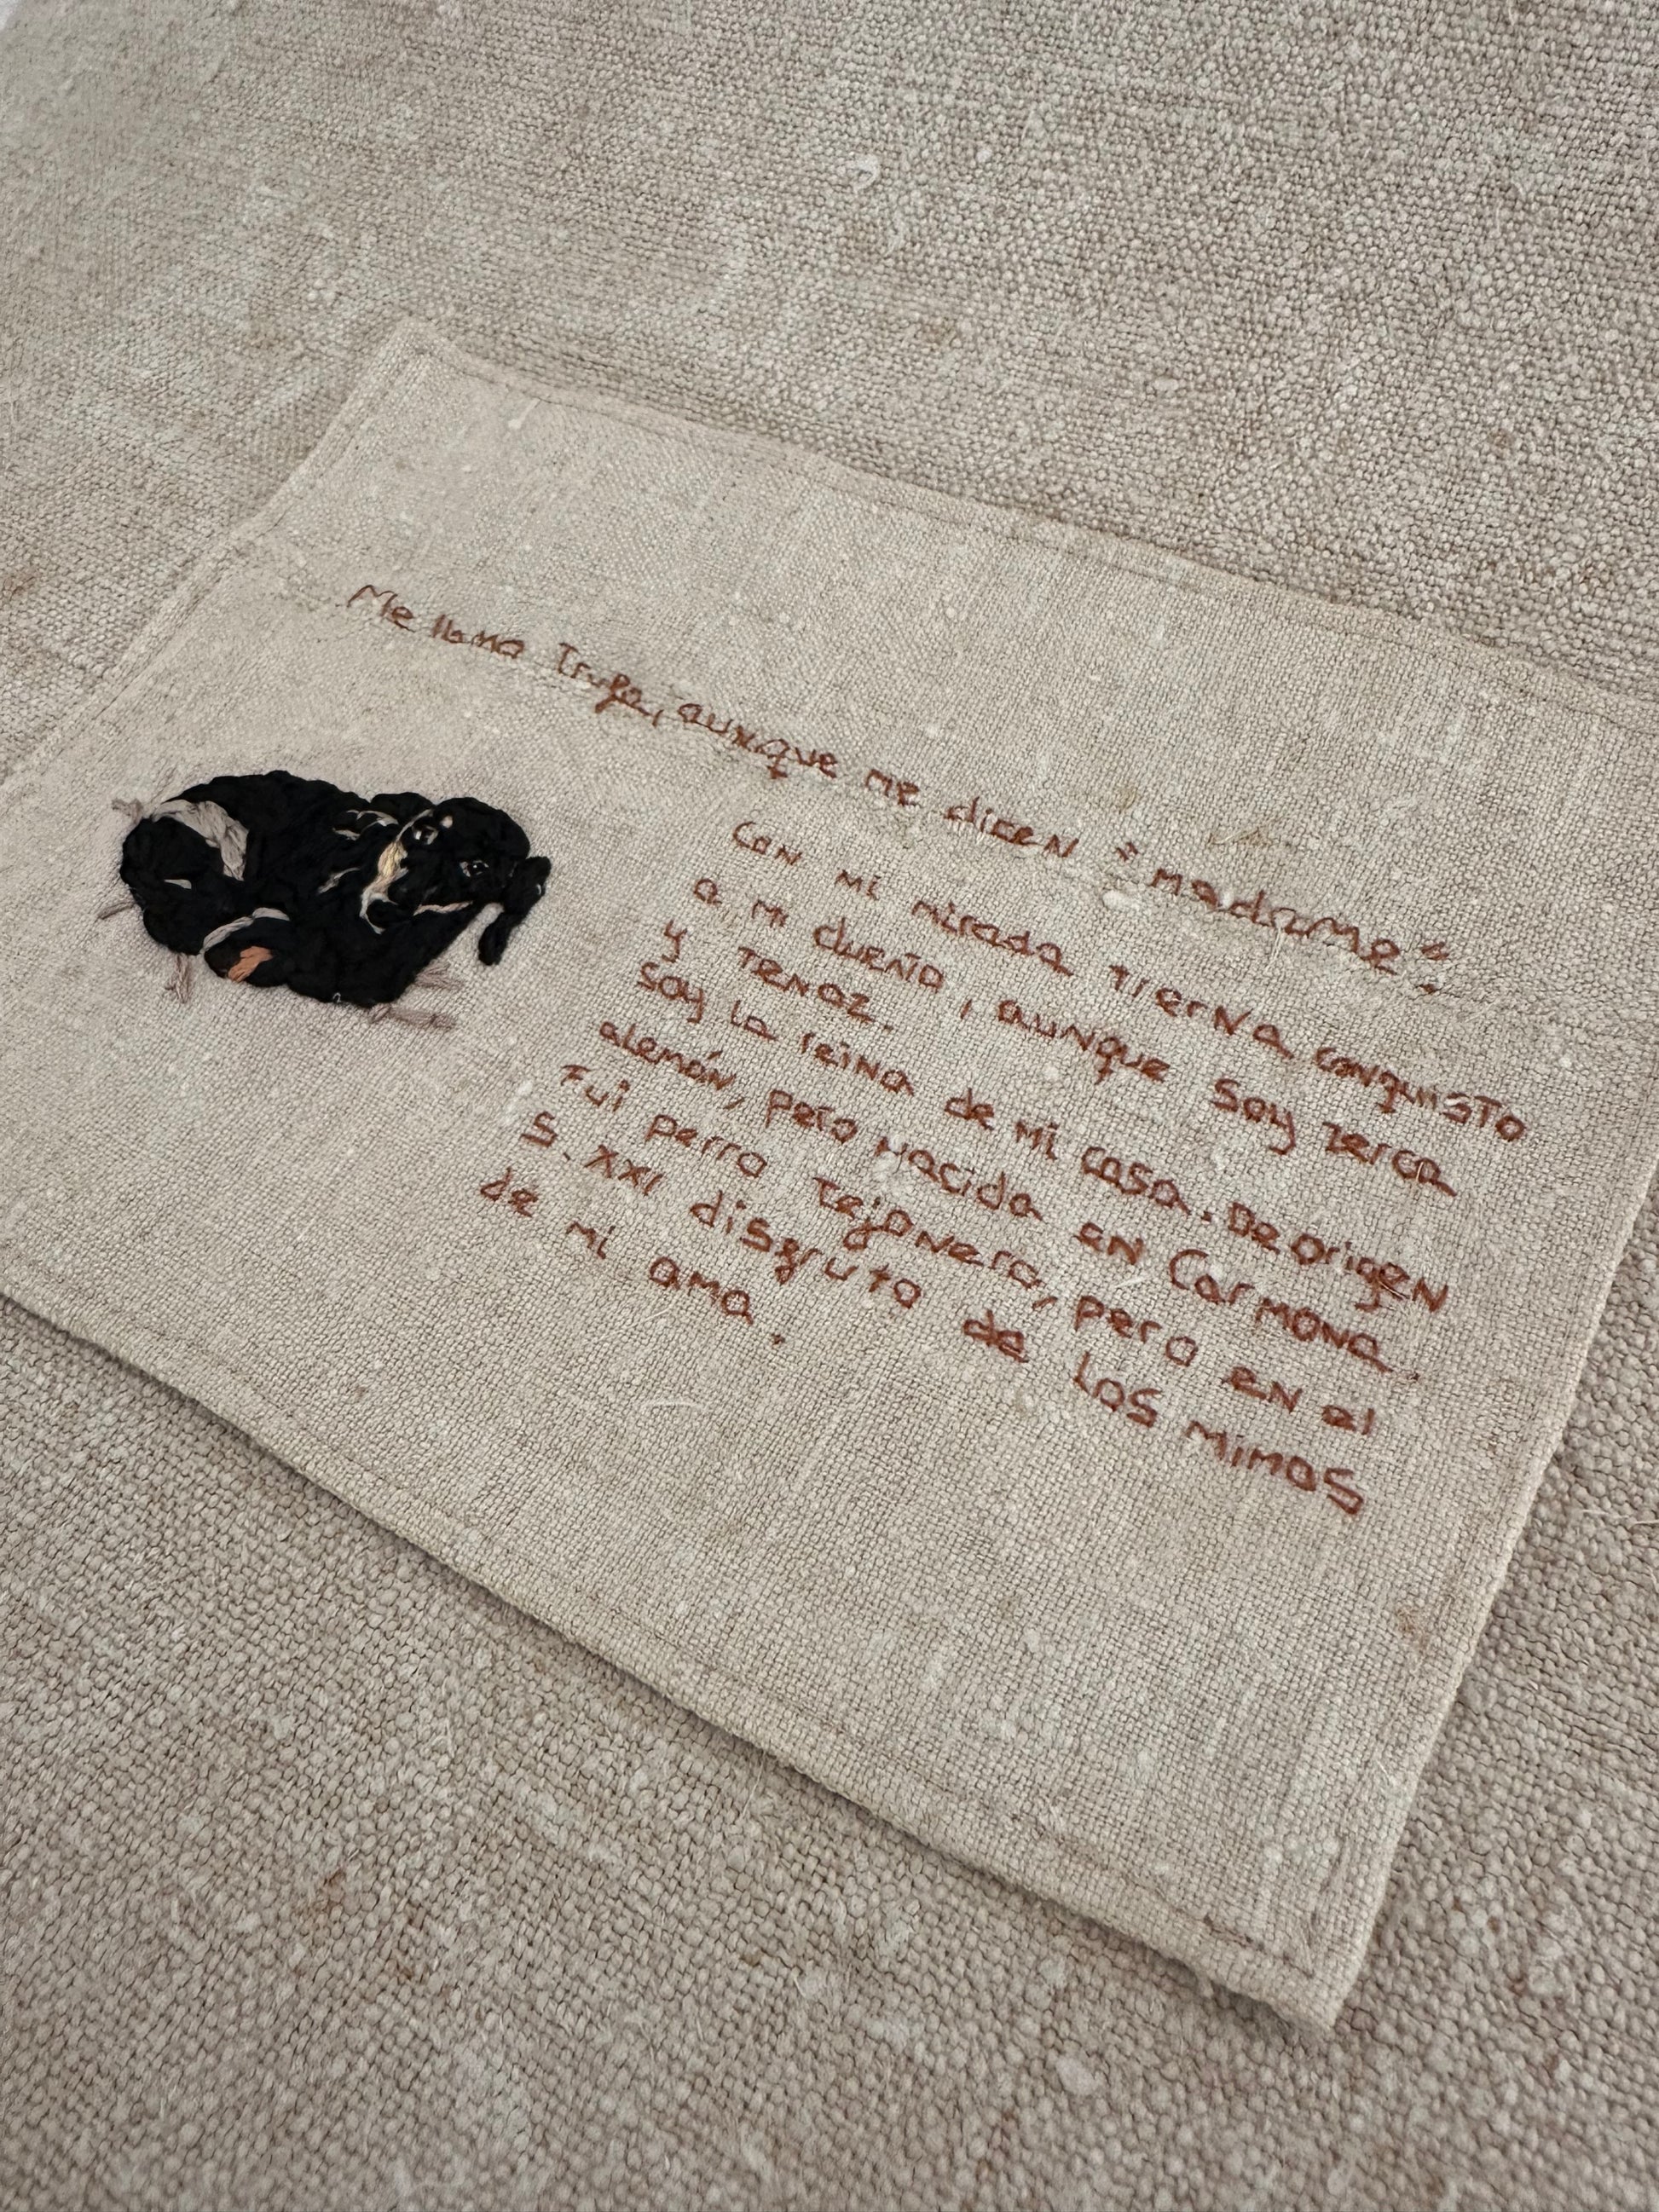 Me llamo Trufa, aunque me dicen "madame".
Con mi mirada tierna conquisto
a mi dueño, aunque soy terca
y tenaz.
Soy la reina de mi casa. De origen
alemán, pero nacida en Carmona.
Fui perro tejonero, pero en el
S.XXI disfruto de los mimos
de mi ama.